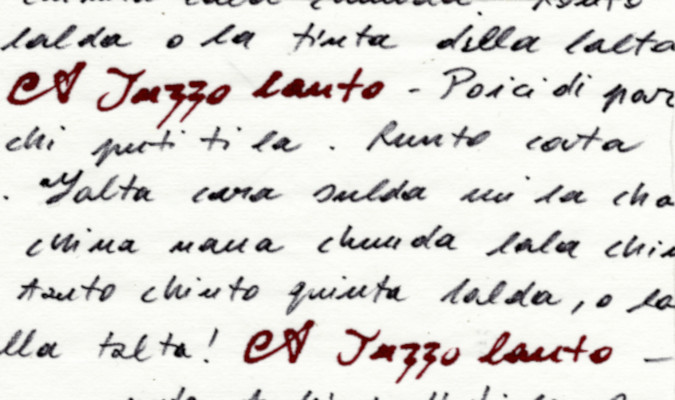 lalda o la tinta della lalta
CA Juzzo lauto - Poici di par
chi puti ti la . Runto cata
. Yalta cara sulda mi la cha
china nana chunda lala chi
tanto chinto quinta lalda, o la
lla talta! CA Juzzo lauto -